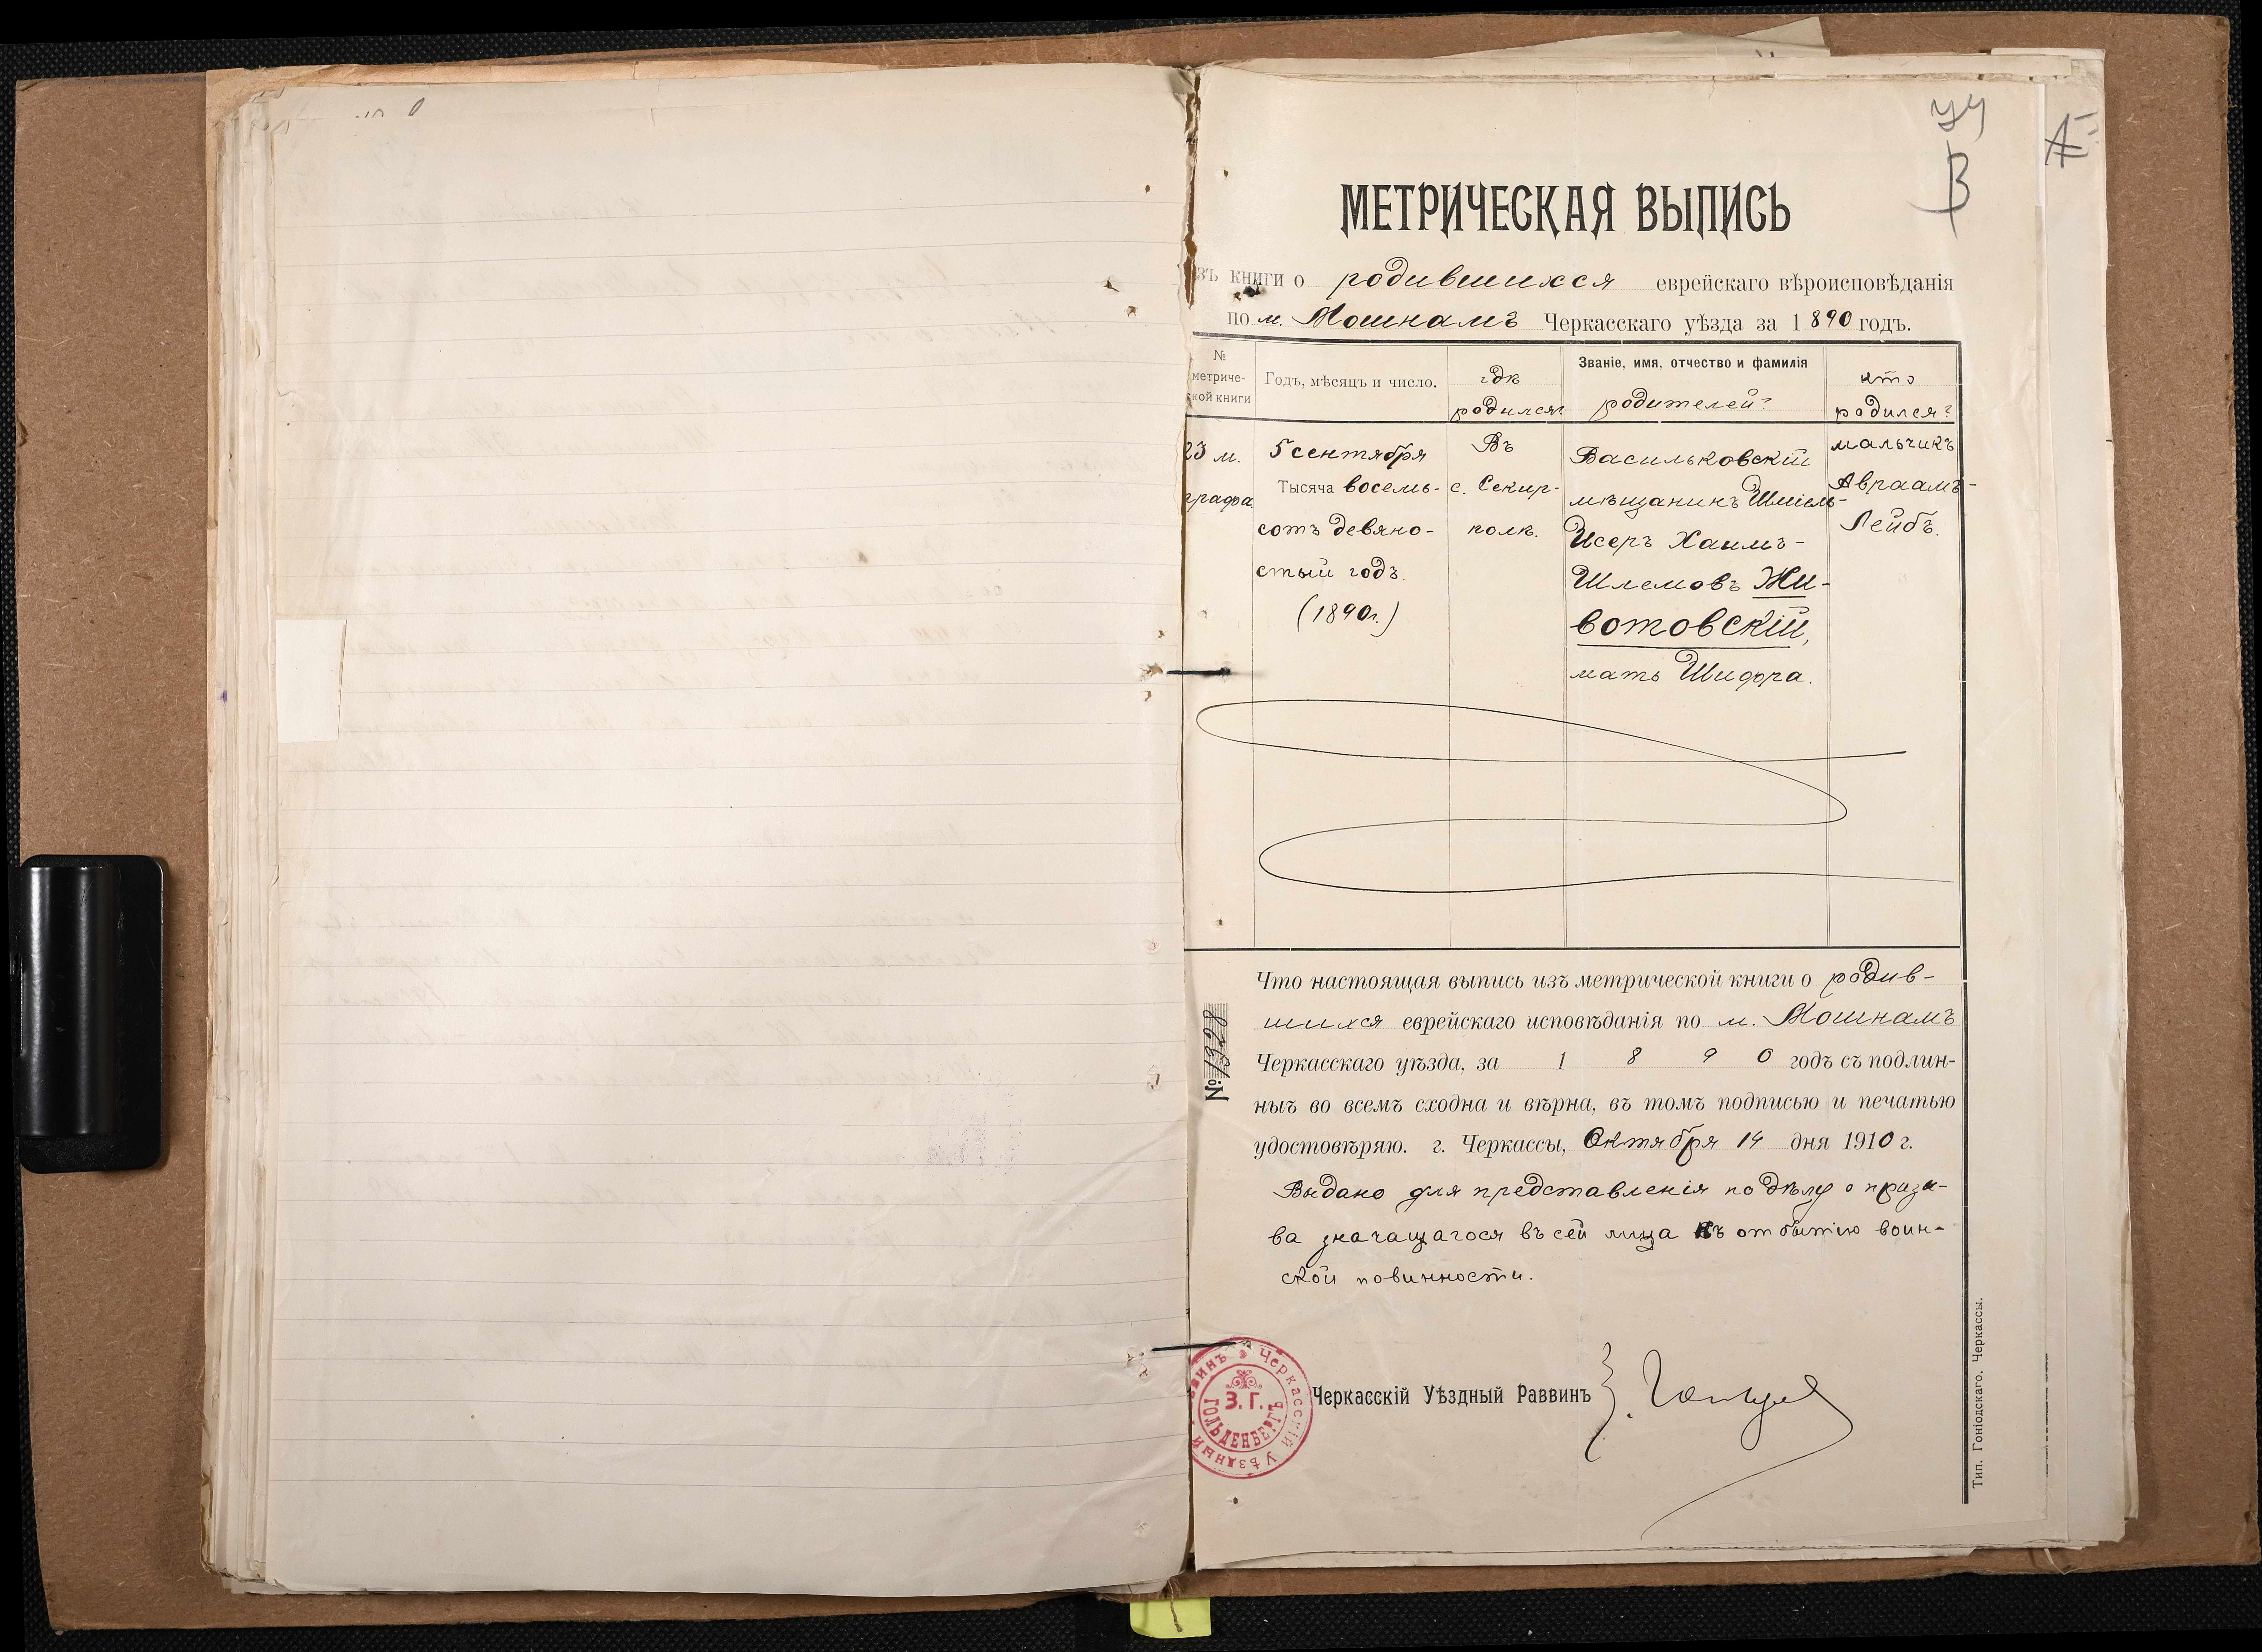 МЕТРИЧЕСКАЯ ВЫПИСЬ
зъ книги о родившихся еврейскаго вѣроисповѣданія
по м. Мошнамъ Черкасскаго уѣзда за 1890 годъ.
№ метриче- ской книги
Годъ, мѣсяцъ и число.
гдѣ родился?
Званіе, имя, отчество и фамилія родителей?
кто родился?
23 м.
графа
5 сентября
Тысяча восемь-
сотъ девяно-
стый годъ.
(1890 г.)
Въ
с. Секир-
колѣ.
Васильковскій
мѣщанинъ Шміель-
Исеръ Хаимъ-
Шлемовъ Жи-
вотовскій,
мать Шифра.
мальчикъ
Авраамъ-
Лейбъ.
Что настоящая выпись изъ метрической книги о родив-
шихся еврейскаго исповѣданія по м. Мошнамъ
Черкасскаго уѣзда, за 1 8 9 0 годъ съ подлин-
ныъ во всемъ сходна и вѣрна, въ томъ подписью и печатью
удостовѣряю. г. Черкассы, Октября 14 дня 1910 г.
Выдано для представленія по дѣлу о призы-
ва значащагося въ сей лица къ отбытію воин-
ской повинности.
№ 1328
Черкасскій Уѣздный Раввинъ
Черкасскій Уѣздный Раввинъ
З. Г.
ГОЛЬДЕНБЕРГЪ
Тип. Гоніодскаго. Черкассы.